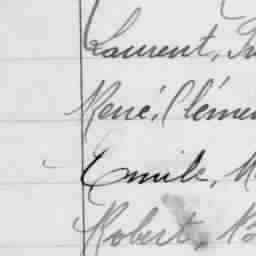 Laurent,
René, Clémen
Emile, M
Robert,